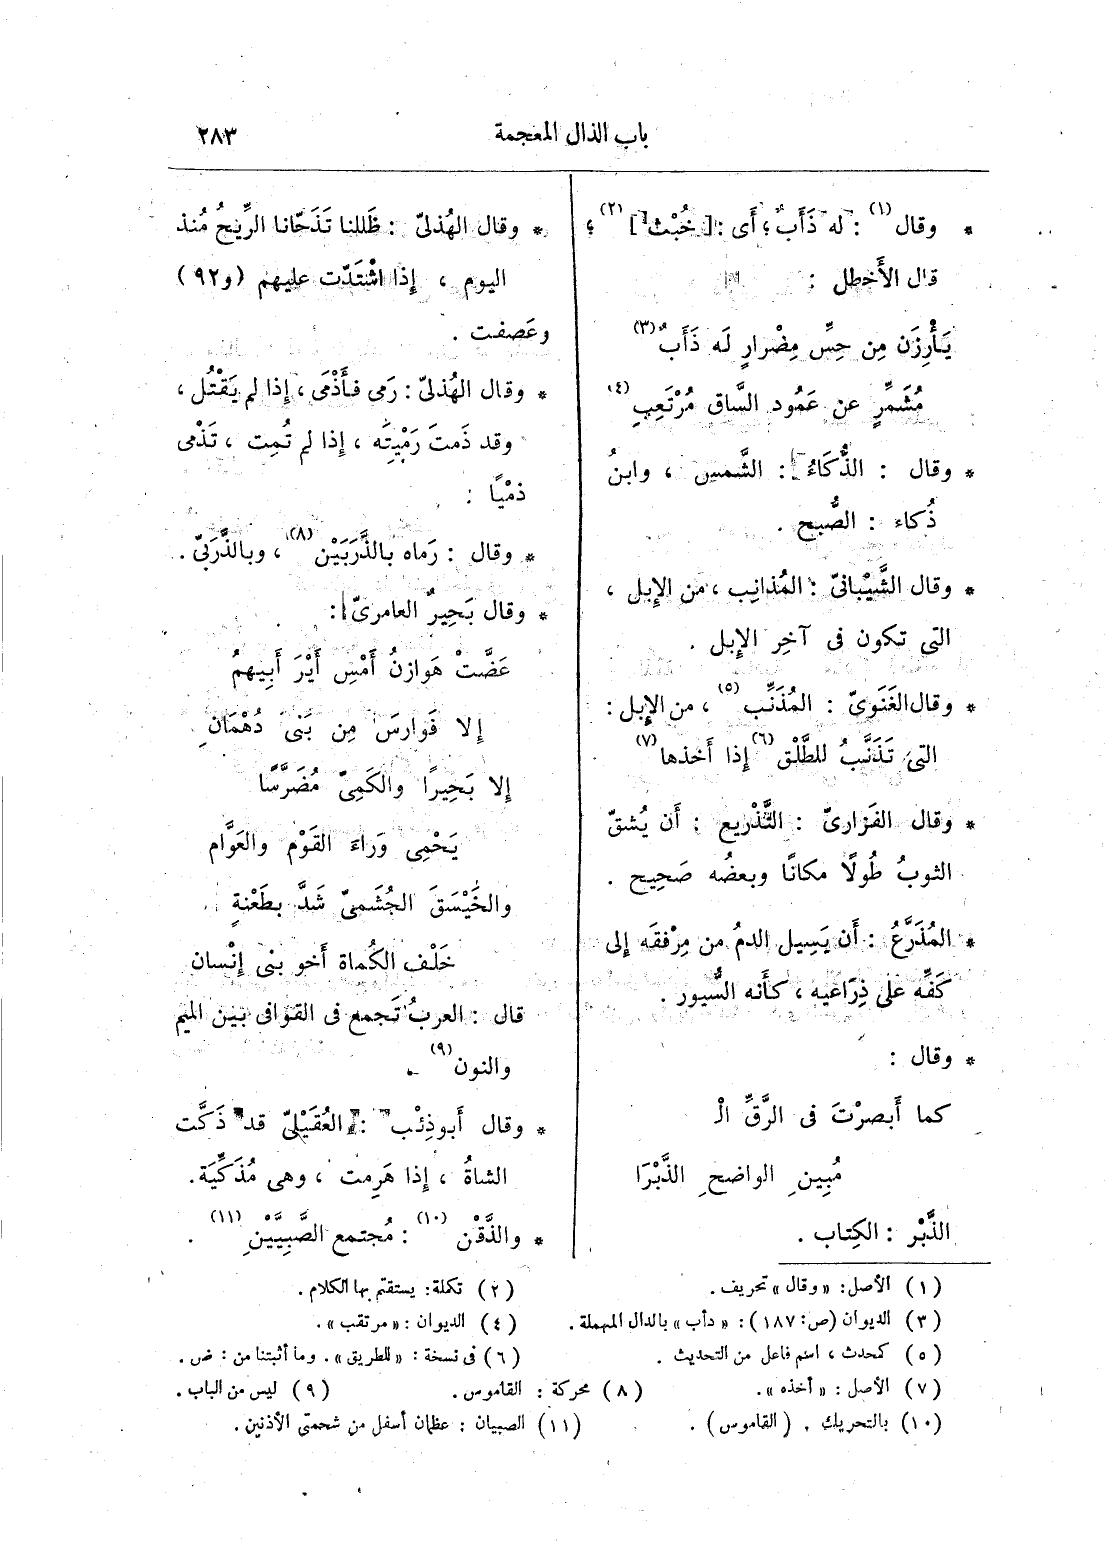 باب الذال المعجمة ٢٨٣
* وقال (١) : له ذَأَبٌ ؛ أَى : [ خُبْث ] (٢) ؛
قال الأَخطل :
يَأْرِزَن مِن حِسِّ مِضْرارٍ لَه ذَأَبٌ (٣)
مُشَمِّرٍ عن عَمُود السَّاق مُرْتَعِبِ (٤)
* وقال : الذُّكَاءُ : الشَّمس ، وابنُ
ذُكاء : الصُّبح .
* وقال الشَّيْبانىّ : المُذانِب ، من الإِبل ،
التى تكون فى آخِر الإِبل .
* وقال الغَنَوىّ : المُذَنِّب (٥) ، من الإِبل :
التى تَذَنَّبُ للطَّلْق (٦) إِذا أَخذها (٧)
* وقال الفَزارىّ : التَّذْريع : أَن يُشقّ
الثوبُ طُولًا مكانًا وبعضُه صَحِيح .
* المُذَرَّعُ : أَن يَسِيل الدمُ من مِرْفقَه إِلى
كَفِّه على ذِرَاعيه ، كأَنه السُّيور .
* وقال :
كما أَبصرْتَ فى الرَّقِّ الْـ
مُبِينِ الواضحِ الذَّبْرَا
الذَّبْر : الكِتاب .
* وقال الهُذلىّ : ظَللنا تَذَحّانا الرِّيحُ مُنذ
اليوم ، إِذا اشْتَدّت عليهم (و٩٢)
وعَصفت .
* وقال الهُذلىّ : رَمى فأَذْمَى ، إِذا لم يَقْتُل ،
وقد ذَمتَ رَمْيِتَه ، إِذا لم تُمِت ، تَذْمى
ذمْيًا :
* وقال : رَماه بالذَّرَبَيْن (٨) ، وبالذَّرَبىّ .
* وقال بَحِيرٌ العامرىّ :
عَضَّتْ هَوازنُ أَمْسِ أَيْرَ أَبِيهمُ
إِلا فَوارسَ مِن بَنى دُهْمَانِ
إِلا بَحِيرًا والكَمِىّ مُضَرَّسًا
يَحْمِى وَراءَ القَوْم والعَوَّام
والخَيْسَقَ الجُشَمىّ شَدَّ بطَعْنةٍ
خَلْف الكُماة أَخو بنى إِنْسان
قال : العربُ تَجمع فى القوافى بين الميم
والنون (٩) .
* وقال أَبو ذِئْب : العُقَيْلىّ قد ذَكَّت
الشاةُ ، إِذا هَرِمت ، وهى مُذَكِّيَة.
* والذَّقْن (١٠) : مُجتمع الصَّبِيَّيْنِ (١١) .
(١) الأصل: «وقال» تحريف. (٢) تكملة: يستقم بها الكلام.
(٣) الديوان (ص: ١٨٧): «دأب» بالدال المهملة. (٤) الديوان : «مرتقب».
(٥) كحدث ، اسم فاعل من التحديث . (٦) فى نسخة : «للطريق». وما أثبتنا من : ض.
(٧) الأصل : «أخذه». (٨) محركة : القاموس. (٩) ليس من الباب.
(١٠) بالتحريك . (القاموس) . (١١) الصبيان : عظمان أسفل من شحمتى الأذنين .